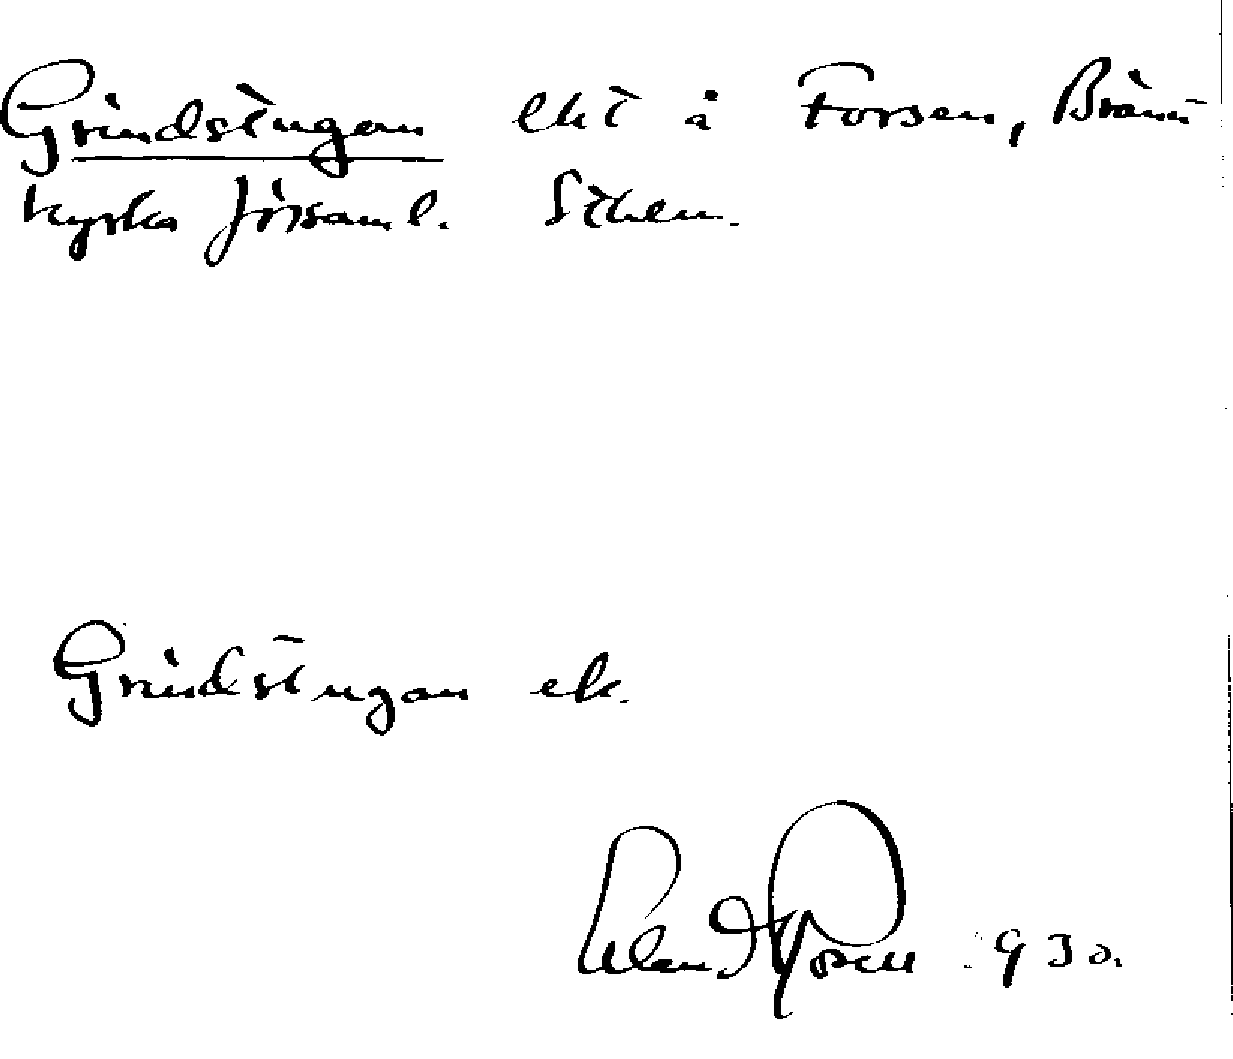 Grindstugan ekt å Forsen, Bränn
kyrka församl. Sthlm.
Grindstugan ek.
1930.